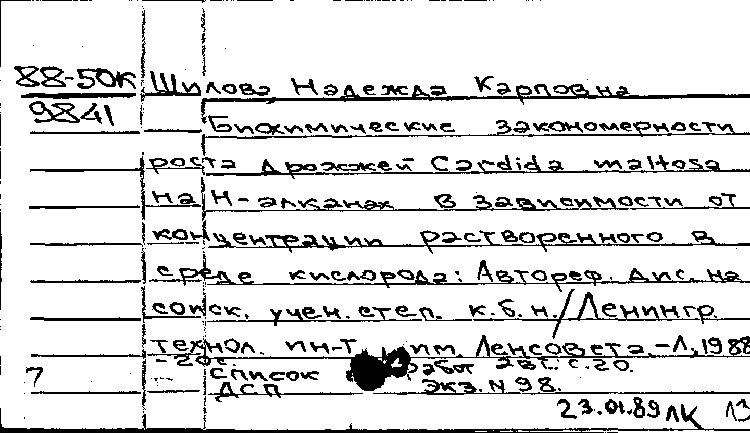 88-50к Шилова, Надежда Карповна
9841
Биохимические закономерности
роста дрожжей Cardida maltosa
на Н-алканах в зависимости от
концентрации растворенного в
среде кислорода: Автореф. дис. на
соиск. учен. степ. к.б.н./Ленингр.
технол. ин-т им. Ленсовета.-Л,1988
-20с.
7 Список работ авт. с.20.
ДСП Экз. N 98.
23.01.89 ЛК 13